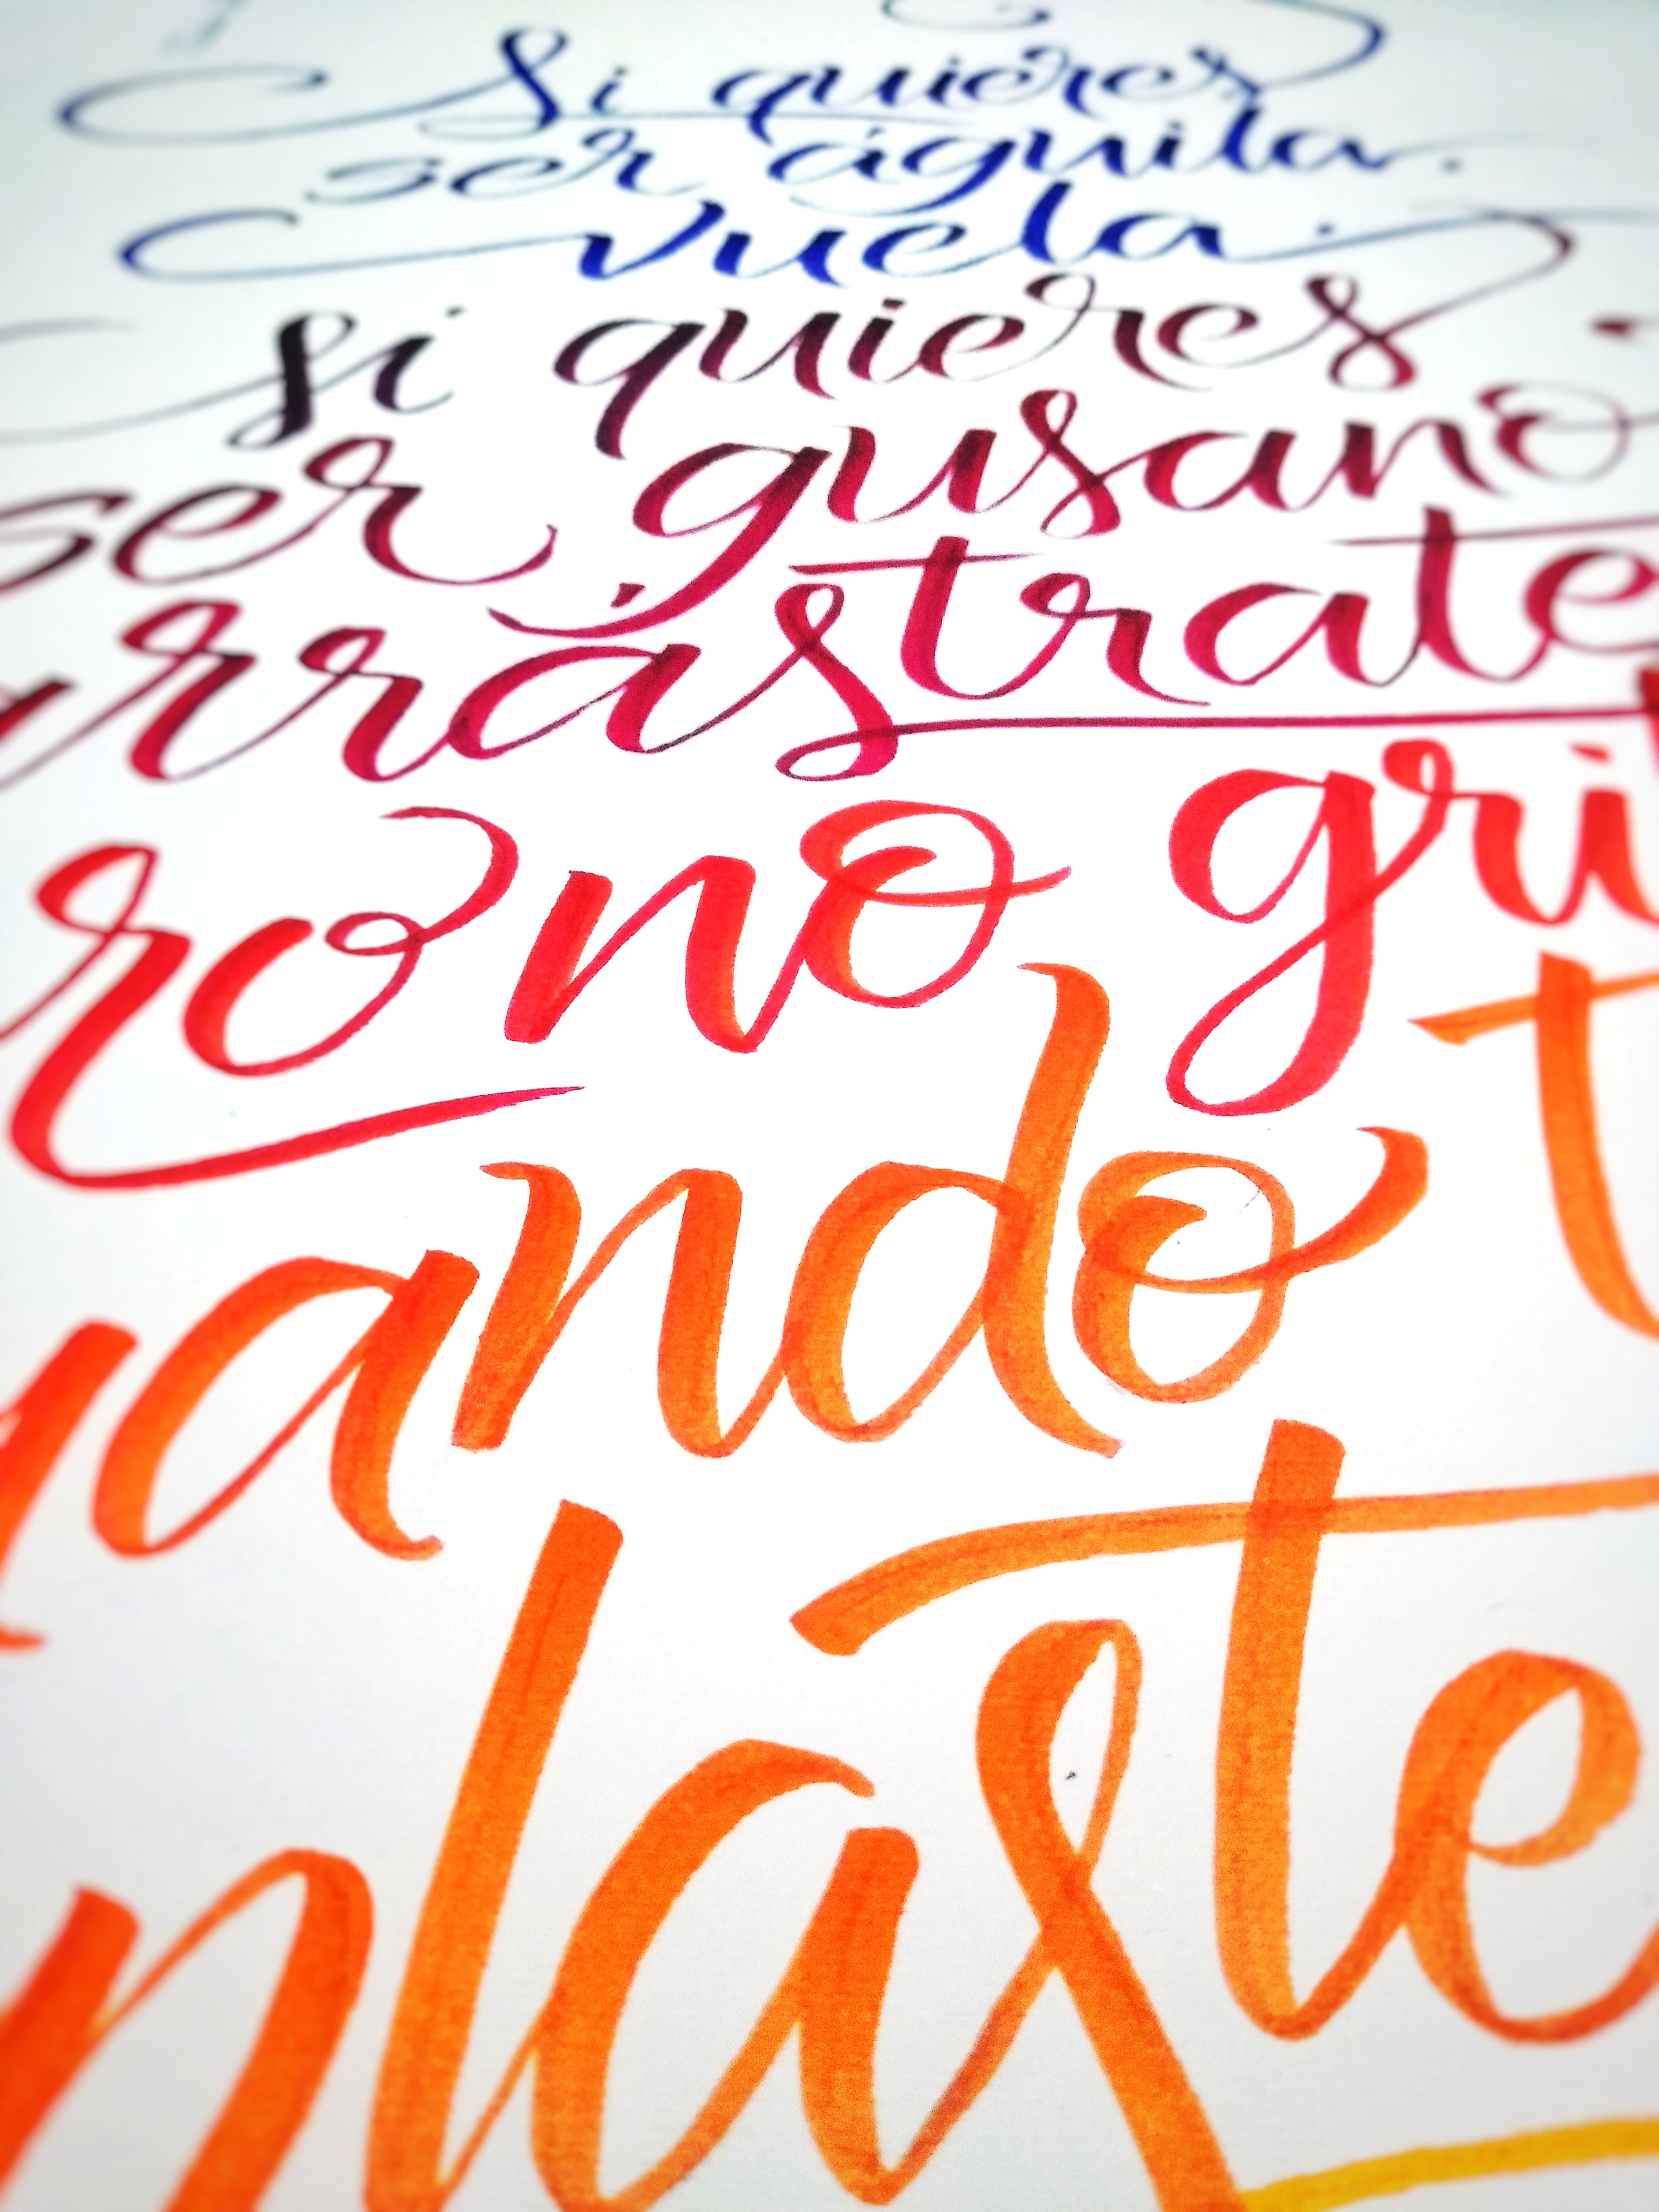 Si quieres
ser águila.
vuela.
Si quieres
ser gusano
arrástrate
ro no grit
ando t
plaste